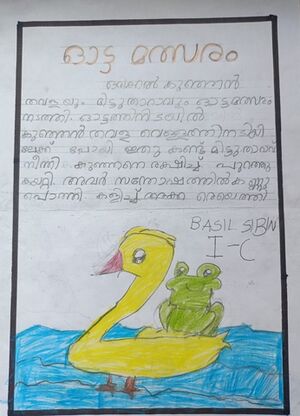 ഓട്ട മത്സരം
ഒരിക്കൽ കുഞ്ഞൻ
തവളയും മിട്ടുതാറാവും ഓട്ടമത്സരം
നടത്തി. ഓട്ടത്തിനിടയിൽ
കുഞ്ഞൻ തവള വെള്ളത്തിനടിയി
ലേക്ക് പോയി ഇതു കണ്ട് മിട്ടുതാറാവ്
നീന്തി കുഞ്ഞനെ രക്ഷിച്ച് പുറത്തു
കയറ്റി. അവർ സന്തോഷത്തിൽ കണ്ണു
പൊത്തി കളിച്ച്
BASIL SIBIN
I-C